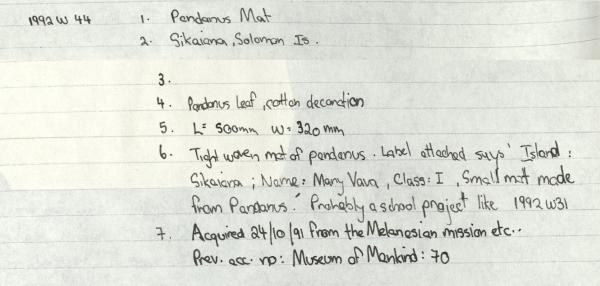 1992 W 44 1. Pandanus Mat
2. Sikaiana, Solomon Is.
3.
4. Pandanus Leaf, cotton decoration
5. L= 500mm W= 320 mm
6. Tight woven mat of pandanus. Label attached says 'Island:
Sikaiana; Name: Mary Vava, Class: I, Small mat made
from Pandanus.' Probably a school project like 1992 W31
7. Acquired 24/10/91 from the Melanesian mission etc..
Prev. acc. no: Museum of Mankind: 70